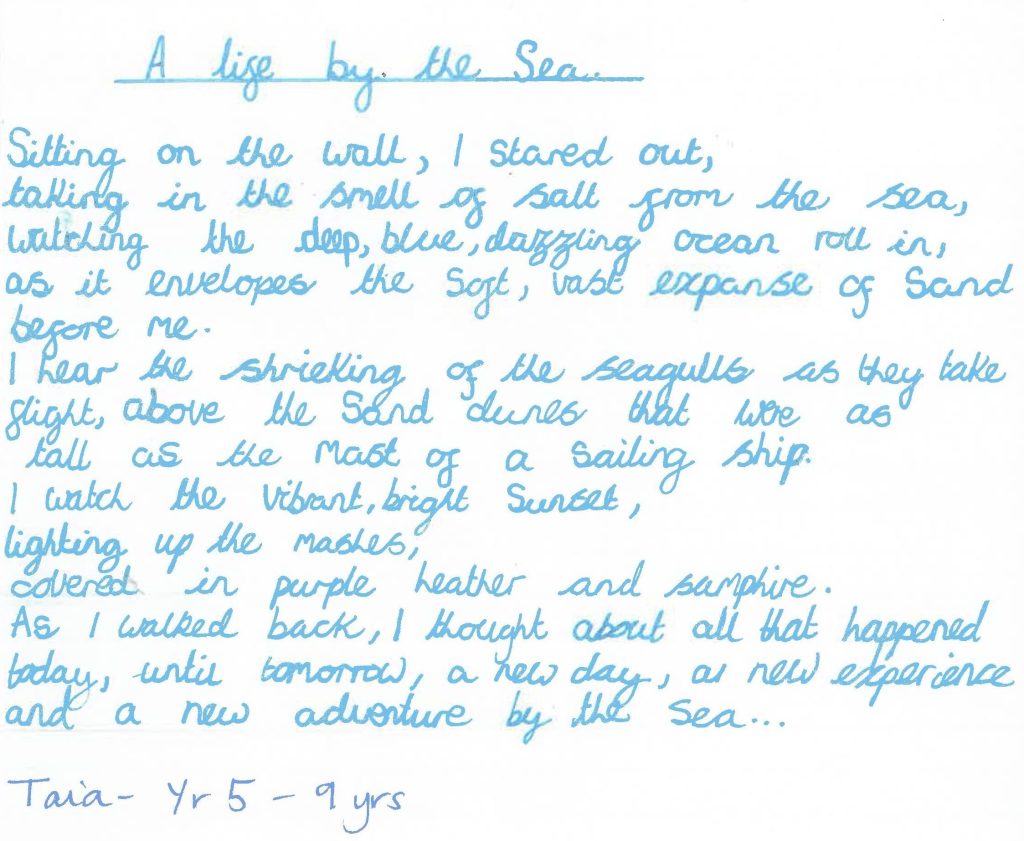 A life by the Sea..
Sitting on the wall, I stared out,
taking in the smell of salt from the sea,
watching the deep, blue, dazzling ocean roll in,
as it envelopes the soft, vast expanse of Sand
before me.
I hear the shrieking of the seagulls as they take
flight, above the Sand dunes that were as
tall as the mast of a sailing ship.
I watch the vibrant, bright Sunset,
lighting up the mashes,
covered in purple heather and samphire.
As I walked back, I thought about all that happened
today, until tomorrow, a new day, a new experience
and a new adventure by the Sea...
Taia - Yr 5 - 9 yrs